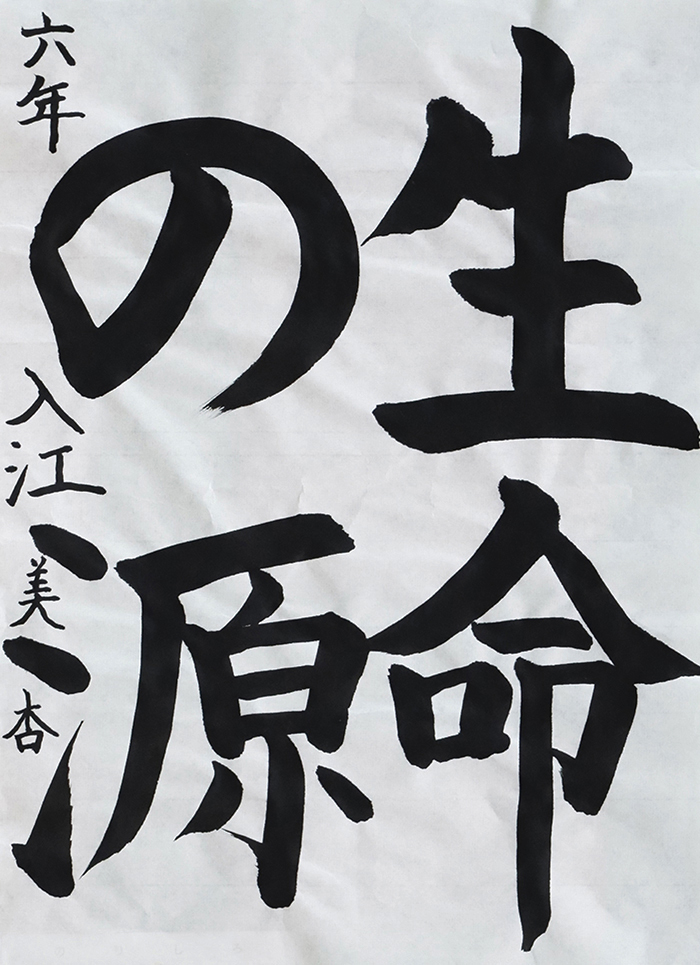 生命
の源
六年 入江美杏